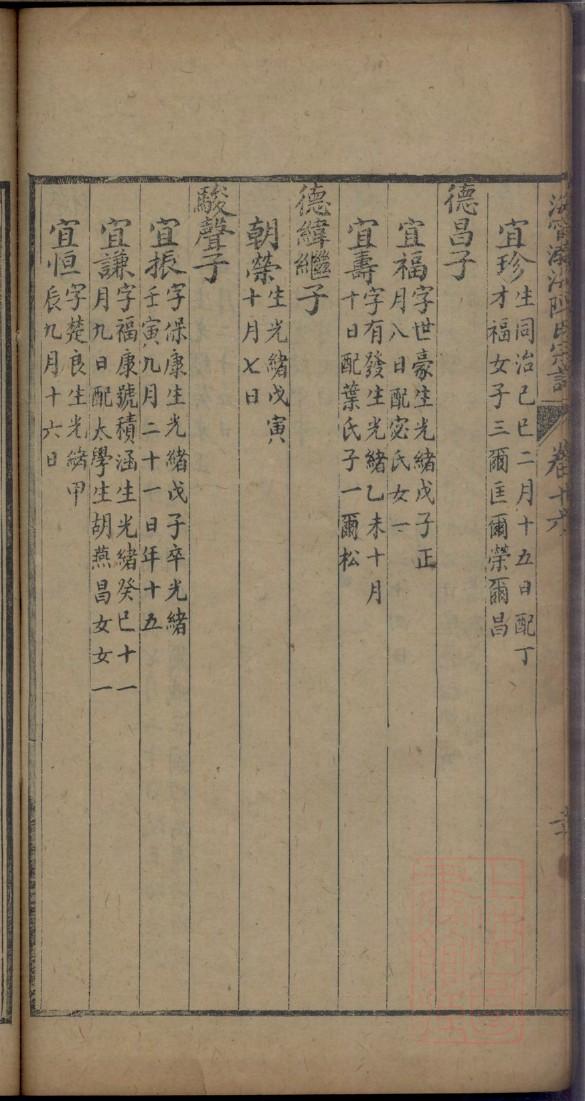 宜珍
生同治己巳二月十五日配丁
才福女子三爾匡爾榮爾昌
德昌子
宜福
字世豪生光緒戊子正
月八日配宓氏女一
宜壽
字有發生光緒乙未十月
十日配葉氏子一爾松
德緯繼子
朝榮
生光緒戊寅
十月七日
駿聲子
宜振
字保康生光緒戊子卒光緒
壬寅九月二十一日年十五
宜謙
字福康號積涵生光緒癸巳十一
月九日配太學生胡燕昌女女一
宜恒
字楚良生光緒甲
辰九月十六日
卷十六